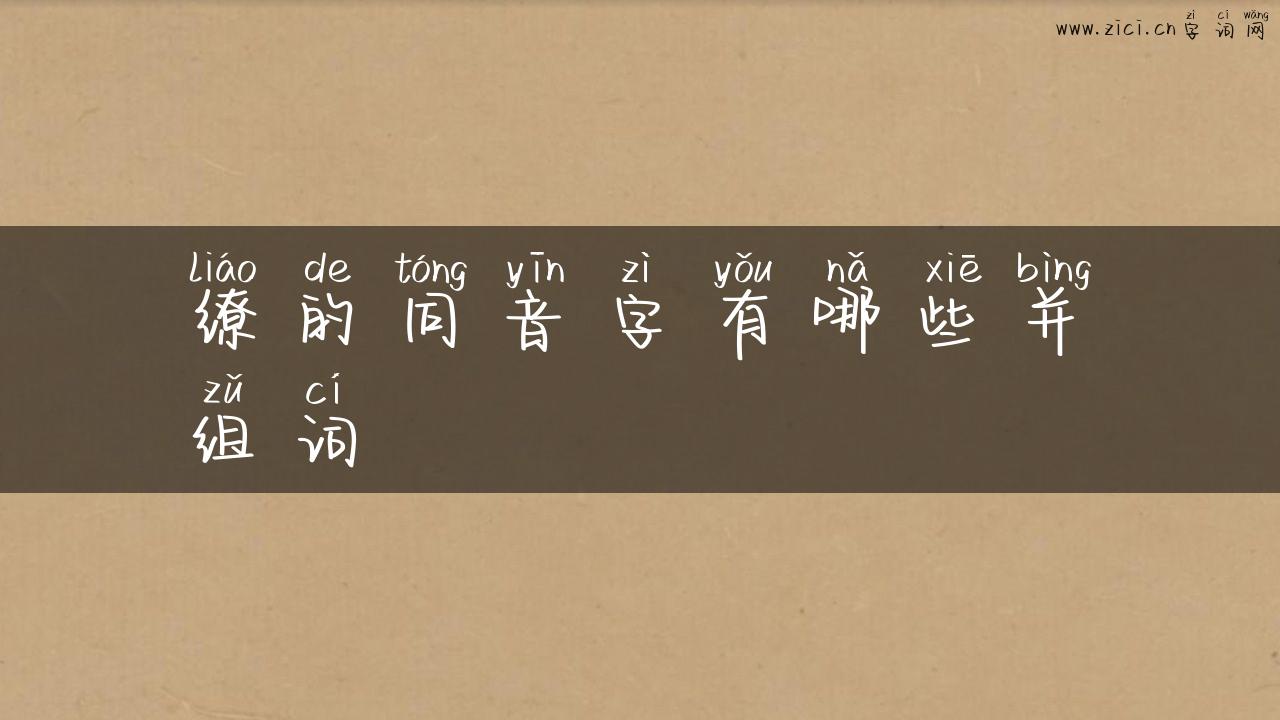 zì cí wǎng
www.zici.cn 字词网
liáo de tóng yīn zì yǒu nǎ xiē bìng
缭的同音字有哪些并
zǔ cí
组词